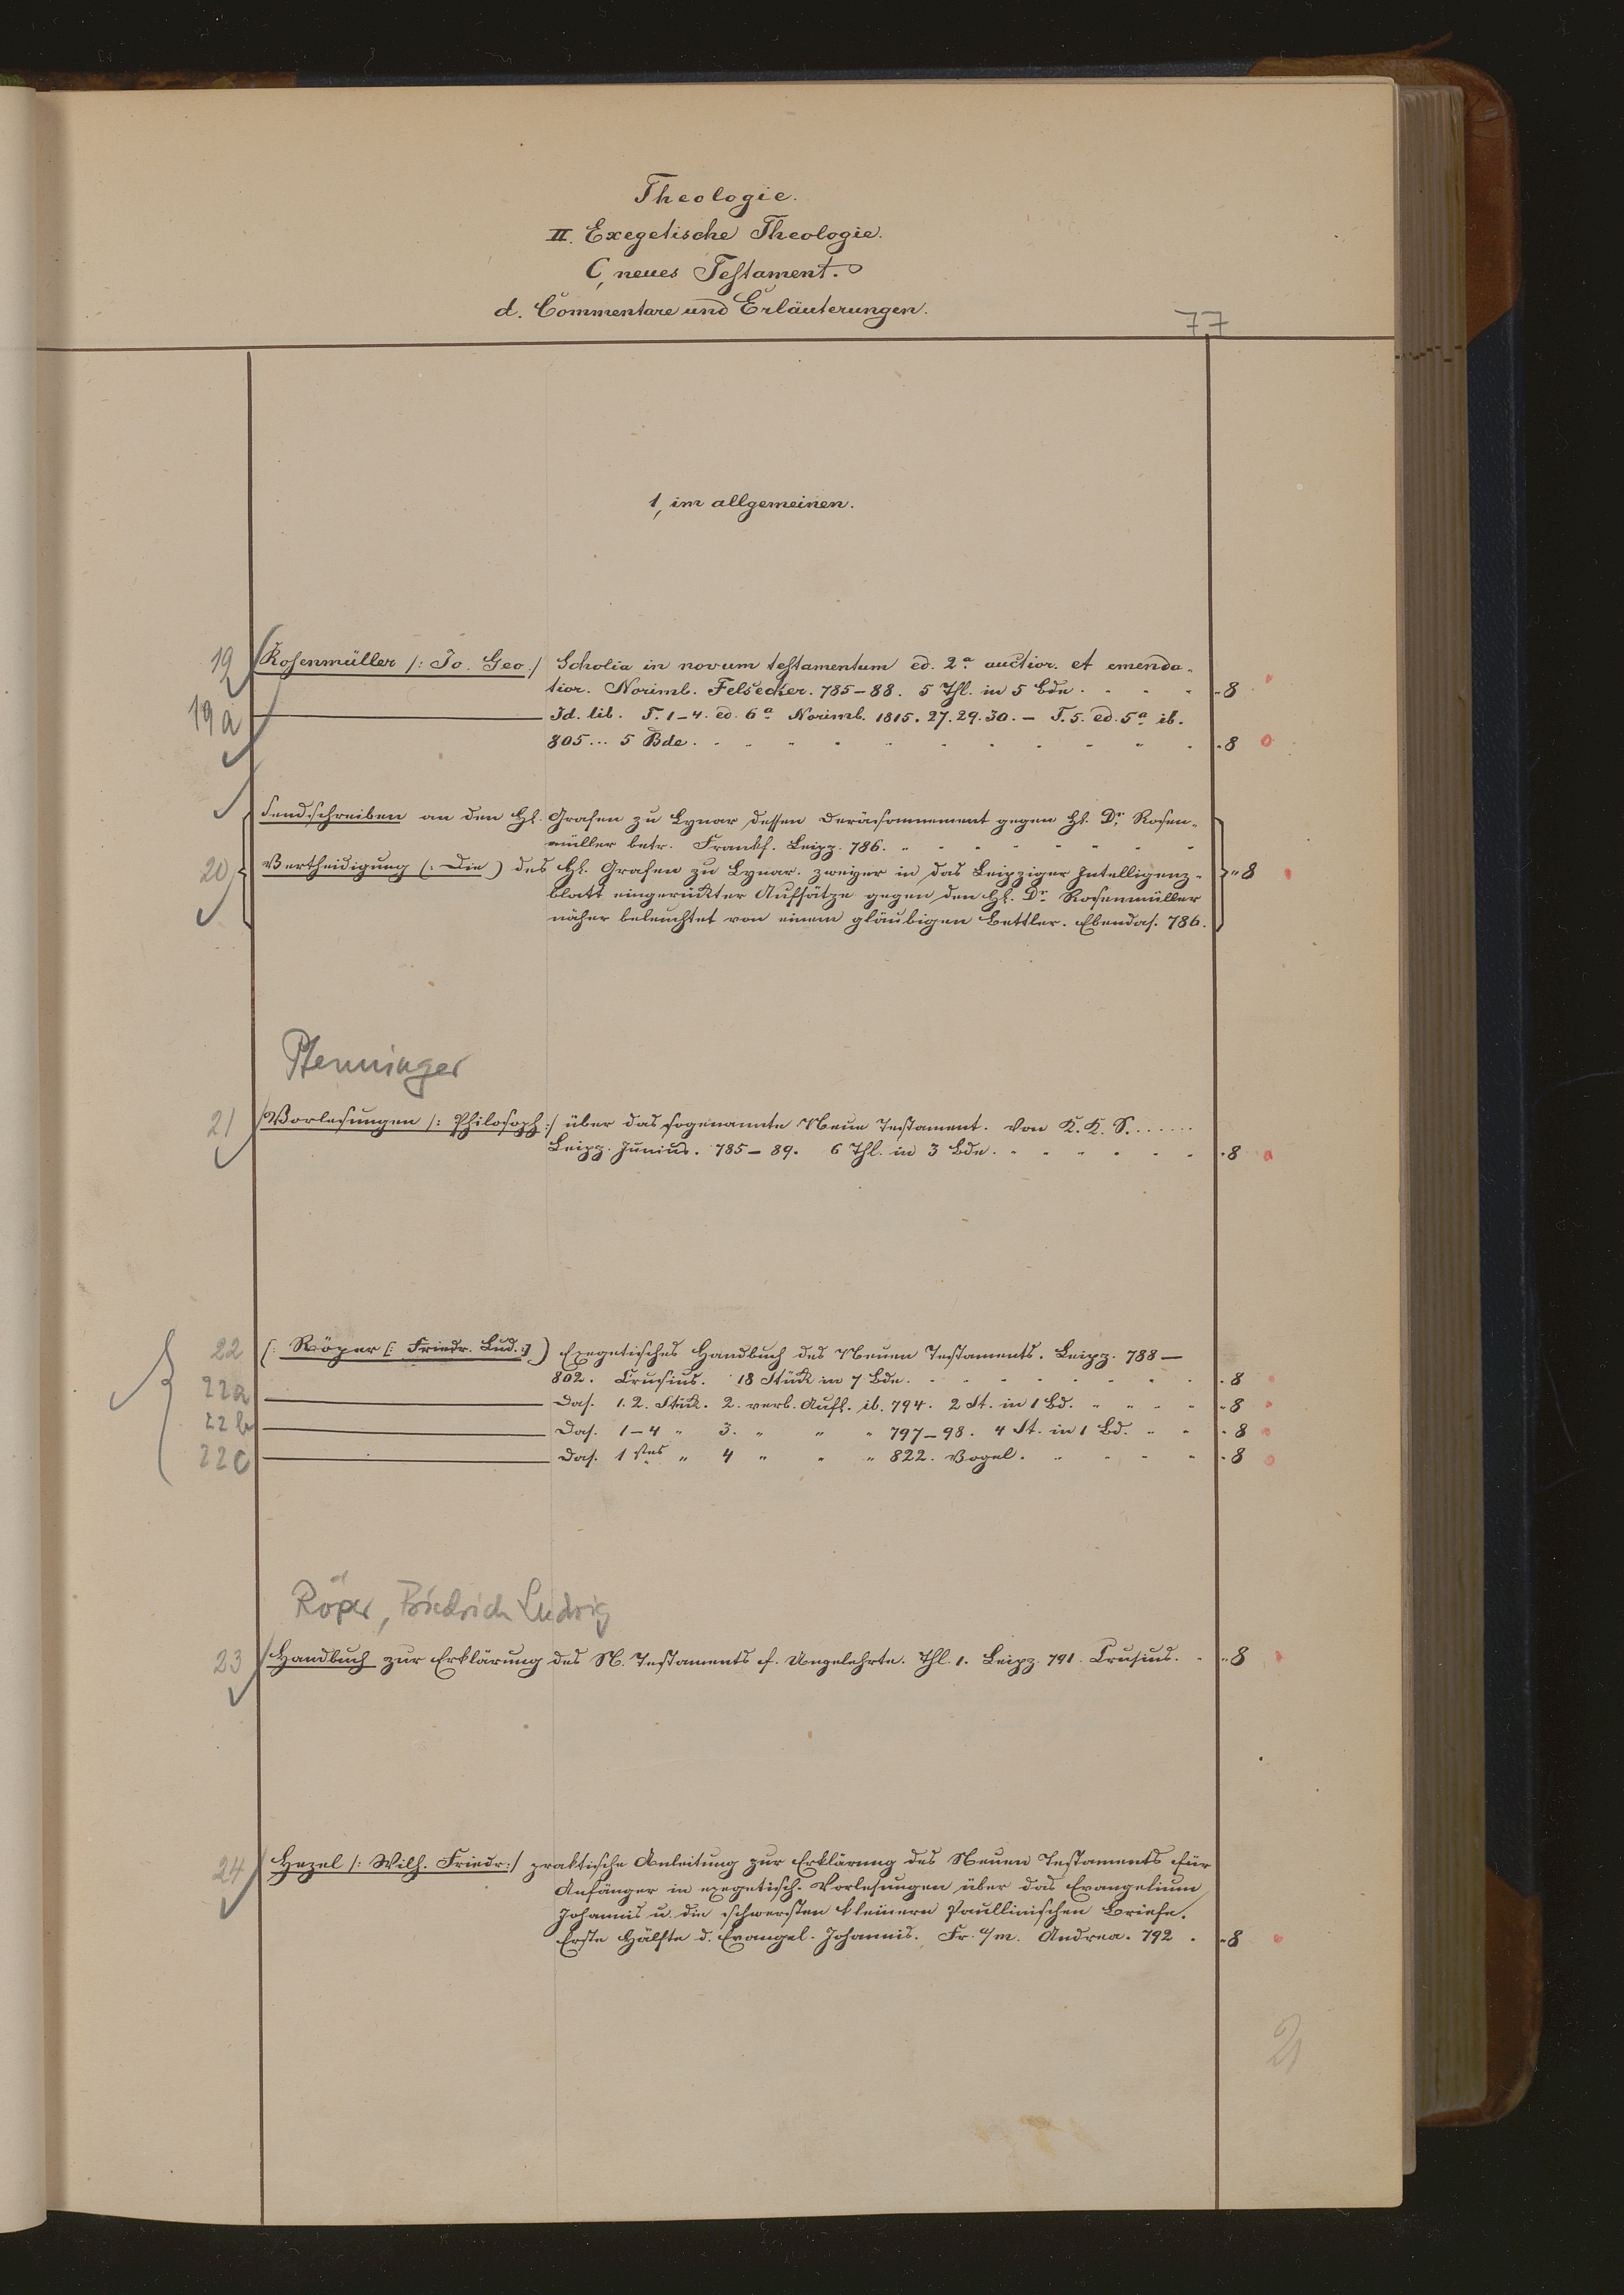 Theologie.
II. Exegetische Theologie.
C, neues Testament.
d. Commentare und Erläuterungen.
77
1, im allgemeinen.
19 Rosenmüller /: Jo. Geo. :/ Scholia in novum testamentum ed. 2a auctior. et emenda-
tior. Norimb. Felsecker. 785–88. 5 Thl. in 5 Bde. 8
19a Id. lib. T. 1–4. ed. 6a Norimb. 1815. 27. 29. 30. – T. 5. ed. 5a ib.
805... 5 Bde. 8
Sendschreiben an den H. Grafen zu Lynar dessen Deräsonnement gegen H. Dr. Rosen-
müller betr. Frankf. Leipz. 786.
20 Vertheidigung (: Die ) des H. Grafen zu Lynar. zweyer in das Leipziger Intelligenz- 8
blatt eingerückter Aufsätze gegen den H. Dr. Rosenmüller
näher beleuchtet von einem gläubigen Bettler. Ebendas. 786.
Pfenninger
21 Vorlesungen /: Philosoph :/ über das sogenannte Neue Testament. Von K. K. S. . . . . . .
Leipz. Junius. 785–89. 6 Thl. in 3 Bde. 8
22 (: Röper (: Friedr. Lud. :) ) Exegetisches Handbuch des Neuen Testaments. Leipz. 788–
802. Crusius. 18 Stück in 7 Bde. 8
22a Das. 1. 2. Stück. 2. verb. Aufl. ib. 794. 2 St. in 1 Bd. 8
22b Das. 1–4 " 3. " " " 797–98. 4 St. in 1 Bd. 8
22c Das. 1stes " 4 " " " 822. Vogel. 8
Röper, Friedrich Ludwig
23 Handbuch zur Erklärung des N. Testaments f. Ungelehrte. Thl. 1. Leipz. 791. Crusius. 8
24 Hezel /: Wilh. Friedr :/ praktische Anleitung zur Erklärung des Neuen Testaments für
Anfänger in exegetisch. Vorlesungen über das Evangelium
Johannis u. die schwersten kleinern Paullinischen Briefe.
Erste Hälfte d. Evangel. Johannis. Fr. a/m. Andrea. 792. 8